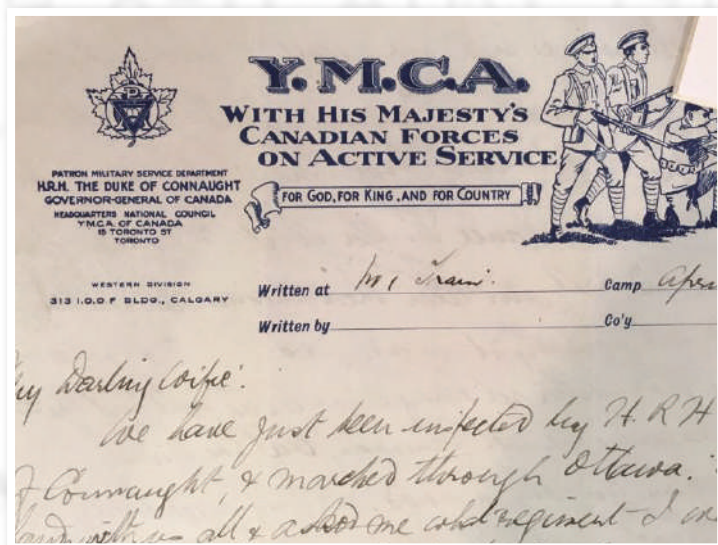 Y.M.C.A.
WITH HIS MAJESTY'S
CANADIAN FORCES
ON ACTIVE SERVICE
FOR GOD, FOR KING, AND FOR COUNTRY
PATRON MILITARY SERVICE DEPARTMENT
H.R.H. THE DUKE OF CONNAUGHT
GOVERNOR-GENERAL OF CANADA
HEADQUARTERS NATIONAL COUNCIL
Y.M.C.A. OF CANADA
15 TORONTO ST
TORONTO
WESTERN DIVISION
313 I.O.O F BLDG., CALGARY
Written at Train. Camp
Written by Co'y
Darling Wifie.
We have just been inspected by H. R H
Connaught, & marched through Ottawa.
with us all & asked me what regiment I